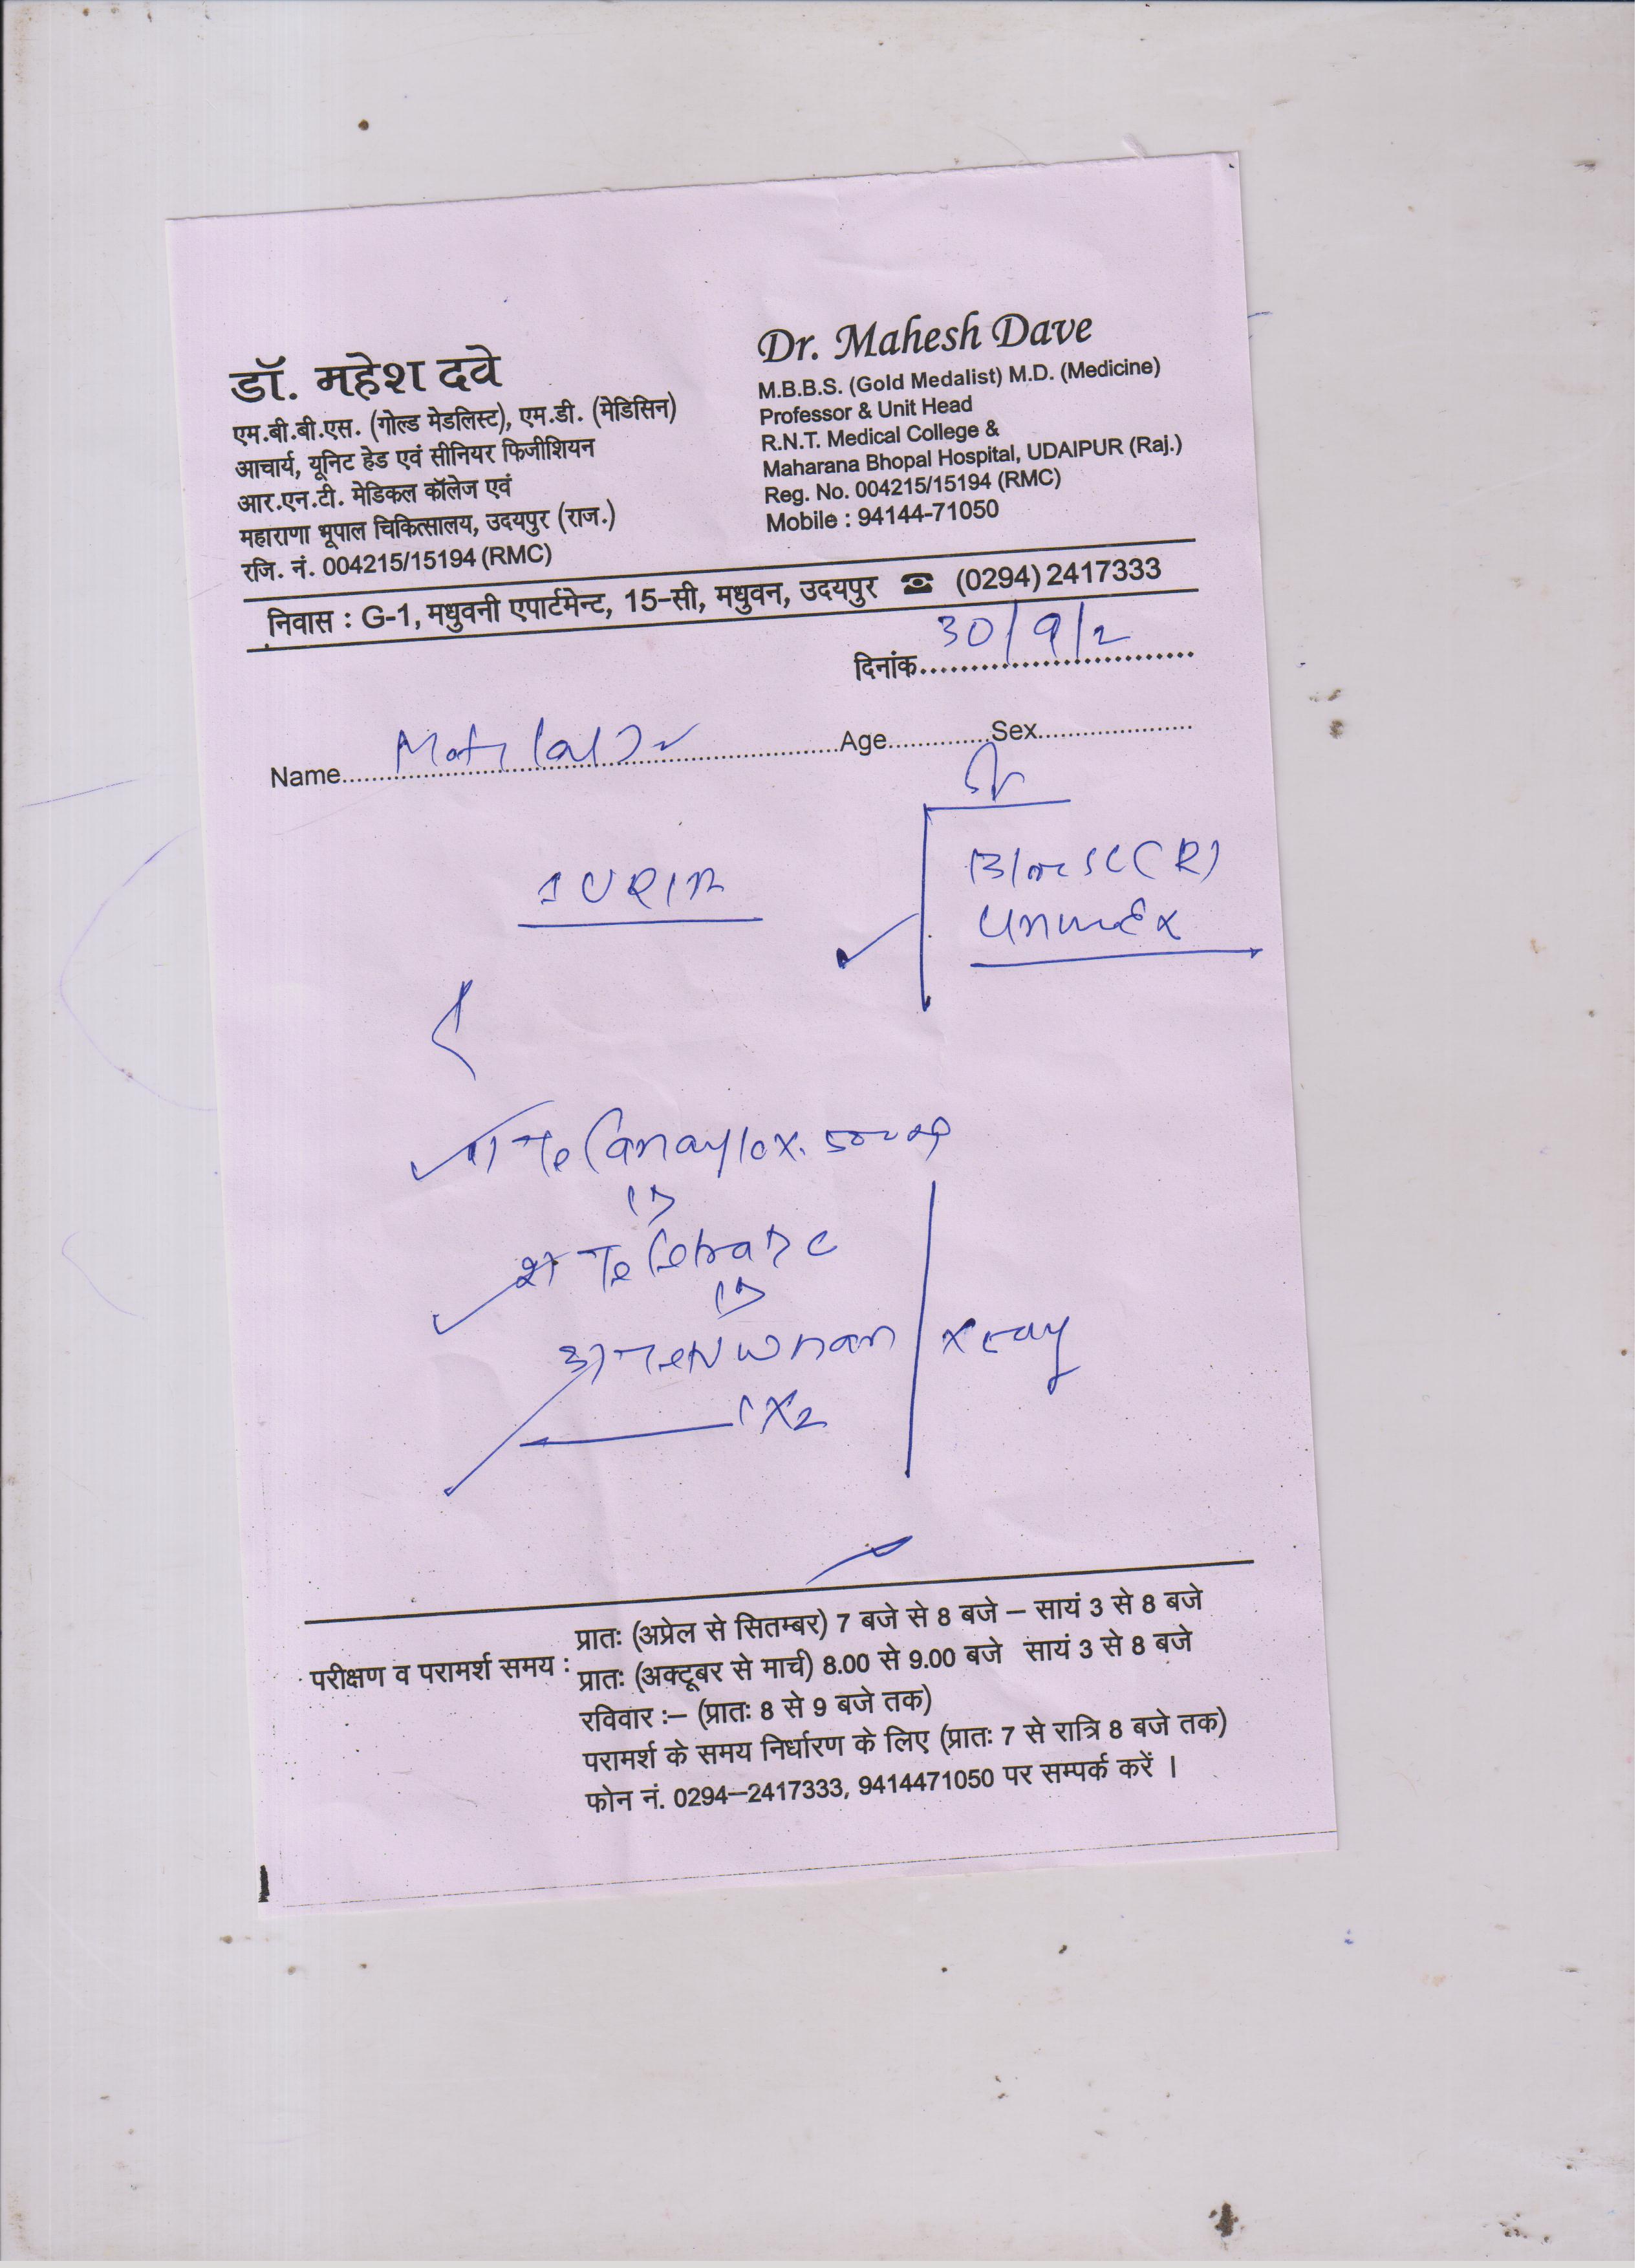 डॉ. महेश दवे
एम.बी.बी.एस. (गोल्ड मेडलिस्ट), एम.डी. (मेडिसिन)
आचार्य, यूनिट हेड एवं सीनियर फिजीशियन
आर.एन.टी. मेडिकल कॉलेज एवं
महाराणा भूपाल चिकित्सालय, उदयपुर (राज.)
रजि. नं. 004215/15194 (RMC)
Dr. Mahesh Dave
M.B.B.S. (Gold Medalist) M.D. (Medicine)
Professor & Unit Head
R.N.T. Medical College &
Maharana Bhopal Hospital, UDAIPUR (Raj.)
Reg. No. 004215/15194 (RMC)
Mobile : 94144-71050
निवास : G-1, मधुवनी एपार्टमेन्ट, 15-सी, मधुवन, उदयपुर ☎ (0294) 2417333
दिनांक 30/9/2
Name Age Sex
1)
2)
3)
X ray
X2
परीक्षण व परामर्श समय :
प्रातः (अप्रेल से सितम्बर) 7 बजे से 8 बजे – सायं 3 से 8 बजे
प्रातः (अक्टूबर से मार्च) 8.00 से 9.00 बजे सायं 3 से 8 बजे
रविवार :– (प्रातः 8 से 9 बजे तक)
परामर्श के समय निर्धारण के लिए (प्रातः 7 से रात्रि 8 बजे तक)
फोन नं. 0294–2417333, 9414471050 पर सम्पर्क करें ।